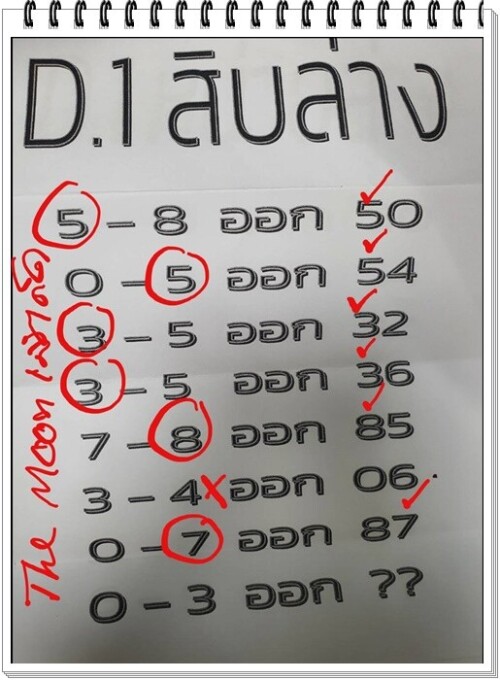 D.1 สิบล่าง
5 – 8 ออก 50
0 – 5 ออก 54
3 – 5 ออก 32
3 – 5 ออก 36
7 – 8 ออก 85
3 – 4 ออก 06
0 – 7 ออก 87
0 – 3 ออก ??
The Moon